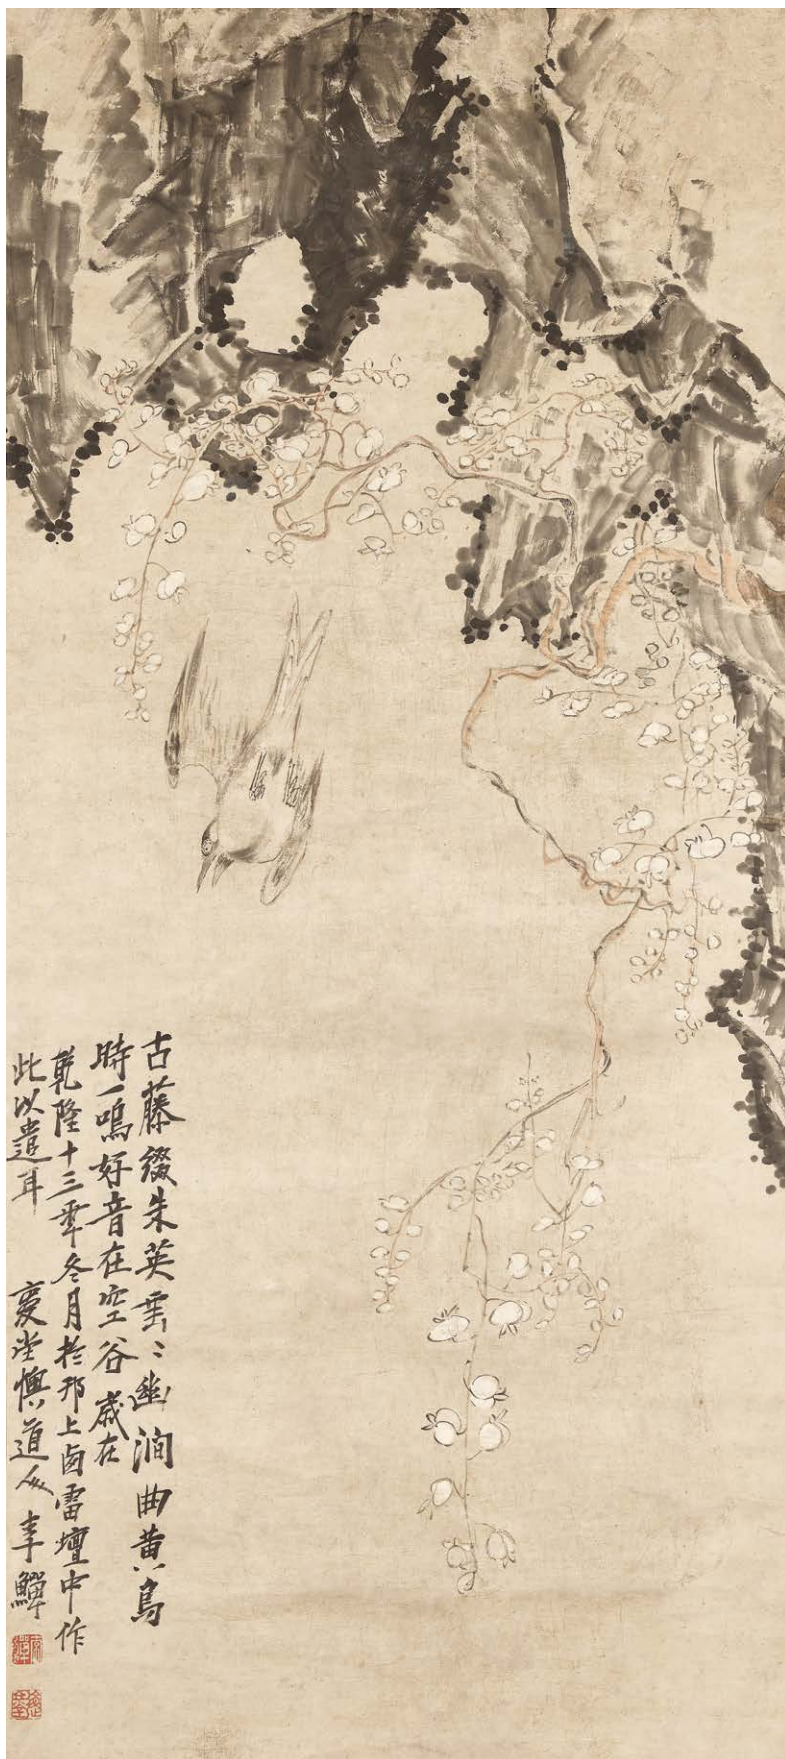 古藤綴朱英垂〻幽澗曲黃鳥
時一鳴好音在空谷 歲在
乾隆十三年冬月於邗上卥雷壇中作
此以遣耳 复堂懊道人李鱓